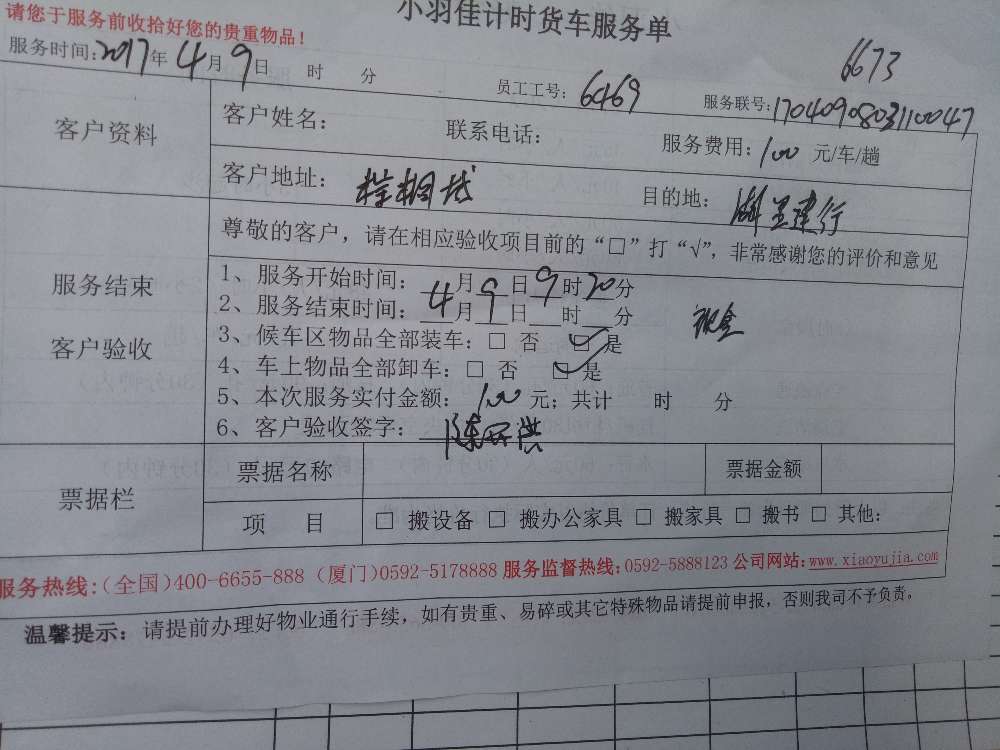 请您于服务前收拾好您的贵重物品！
小羽佳计时货车服务单
6673
服务时间：2017年4月9日 时 分 员工工号：6469 服务联号：1704090803110047
客户资料
客户姓名： 联系电话： 服务费用：100元/车/趟
客户地址：棕榈城 目的地：湖里建行
尊敬的客户，请在相应验收项目前的“□”打“√”，非常感谢您的评价和意见
服务结束
客户验收
1、服务开始时间：4月9日9时20分
2、服务结束时间：4月9日__时__分
现金
3、候车区物品全部装车：□ 否 ☑ 是
4、车上物品全部卸车：□ 否 ☑ 是
5、本次服务实付金额：100元；共计 时 分
6、客户验收签字：
票据栏
票据名称 票据金额
项 目 □ 搬设备 □ 搬办公家具 □ 搬家具 □ 搬书 □ 其他：
服务热线：(全国)400-6655-888 (厦门)0592-5178888 服务监督热线：0592-5888123 公司网站：www.xiaoyujia.com
温馨提示：请提前办理好物业通行手续，如有贵重、易碎或其它特殊物品请提前申报，否则我司不予负责。